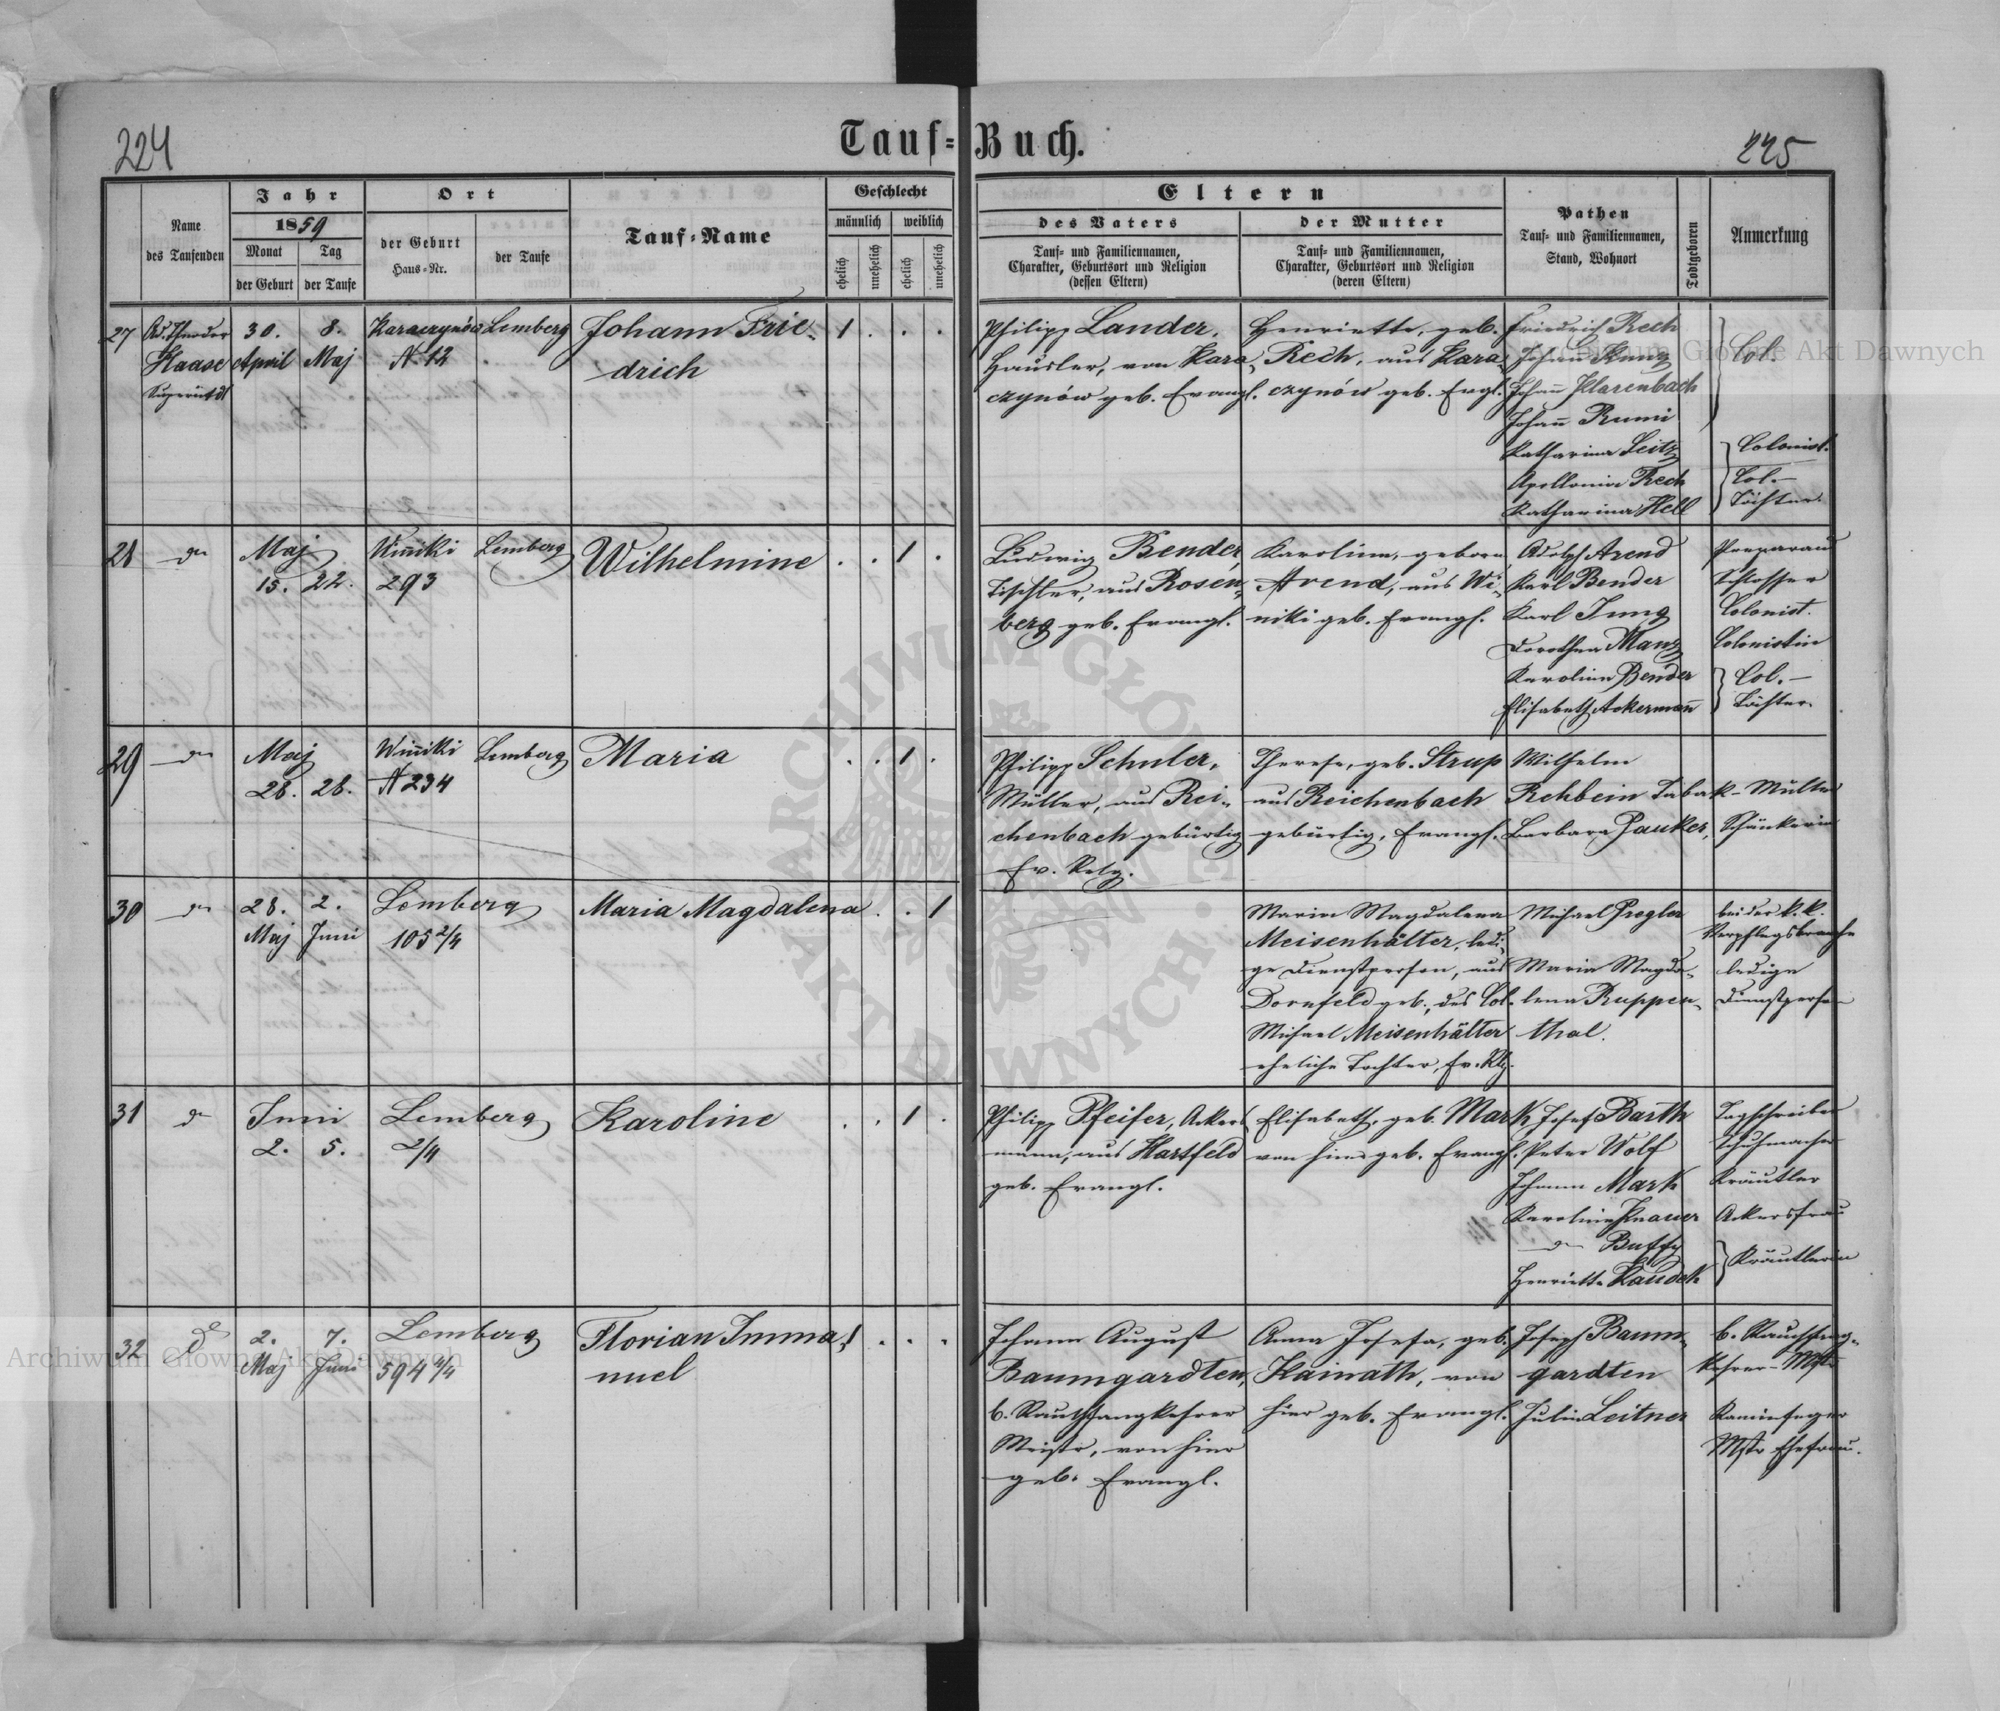 224
Tauf-Buch.
225
Name
des Taufenden
Jahr
1859
Monat
der Geburt
Tag
der Taufe
Ort
der Geburt
Haus-Nr.
der Taufe
Tauf-Name
Geschlecht
männlich
weiblich
ehelich
unehelich
ehelich
unehelich
Eltern
des Vaters
Tauf- und Familiennamen,
Charakter, Geburtsort und Religion
(dessen Eltern)
der Mutter
Tauf- und Familiennamen,
Charakter, Geburtsort und Religion
(deren Eltern)
Pathen
Tauf- und Familiennamen,
Stand, Wohnort
Todtgeboren
Anmerkung
27
Ad. Theodor
Haase
Superintdt
30.
April
8.
Maj
Karaczynów
N 12
Lemberg
Johann Frie-
drich
1
Philipp Lander,
Häusler, von Kara-
czynów geb. Evangl.
Henriette, geb.
Rech, aus Kara-
czynów geb. Evgl.
Friedrich Rech
Johann Kunz
Johann Klarenbach
Johann Rumi
Katharina Leitz
Apollonia Rech
Katharina Hell
Col.
Colonist.
Col.-
Töchter.
28
do
Maj
15. 22.
Winiki
293
Lemberg
Wilhelmine
1
Ludwig Bender,
Tischler, aus Rosen-
berg geb. Evangl.
Karolina, geborn
Arend, aus Wi-
niki geb. Evangl.
Adolf Arend
Karl Bender
Karl Jung
Dorothea Manz
Karolina Bender
Elisabeth Ackermann
Schlosser
Colonist.
Colonistin
Col.-
Töchter.
29
do
Maj
28. 28.
Winiki
N 234
Lemberg
Maria
1
Philipp Schuler,
Müller, aus Rei-
chenbach gebürtig
Ev. Relg.
Therese, geb. Strup
aus Reichenbach
gebürtig, Evangl.
Wilhelm
Rehbein Tabak-Müller
Barbara Pauker, Schänkerin
30
do
28.
Maj
2.
Juni
Lemberg
105 2/4
Maria Magdalena
1
Maria Magdalena
Meisenhälter, ledi-
ge Dienstperson, aus
Dornfeld geb., des Col.
Michael Meisenhälter
eheliche Tochter, Ev. Rlg.
Michael Progler
Maria Magda-
lena Ruppen-
thal.
bei der k. k.
Verpflegsbranche
ledige
Dienstperson
31
do
Juni
2. 5.
Lemberg
2/4
Karoline
1
Philipp Pfeifer, Ackers-
mann, aus Hartfeld
geb. Evangl.
Elisabeth, geb. Mark
von hier geb. Evangl.
Josef Barth
Peter Wolf
Johann Mark
Karolina Knauer
do Buffy
Henriette Kaudek
Tagschreiber
Schuhmacher
Kräutler
Ackersfrau
Kräutlerin
32
do
2.
Maj
7.
Juni
Lemberg
594 4/4
Florian Imma-
nuel
1
Johann August
Baumgardten,
b. Rauchfangkehrer
Meister, von hier
geb. Evangl.
Anna Josefa, geb.
Kainath, von
hier geb. Evangl.
Joseph Baum-
gardten
Julie Leitner
b. Rauchfang-
kehrer-Mstr
Kaminfeger
Mstr Ehefrau.
Archiwum Główne Akt Dawnych
Archiwum Główne Akt Dawnych
ARCHIWUM GŁÓWNE AKT DAWNYCH